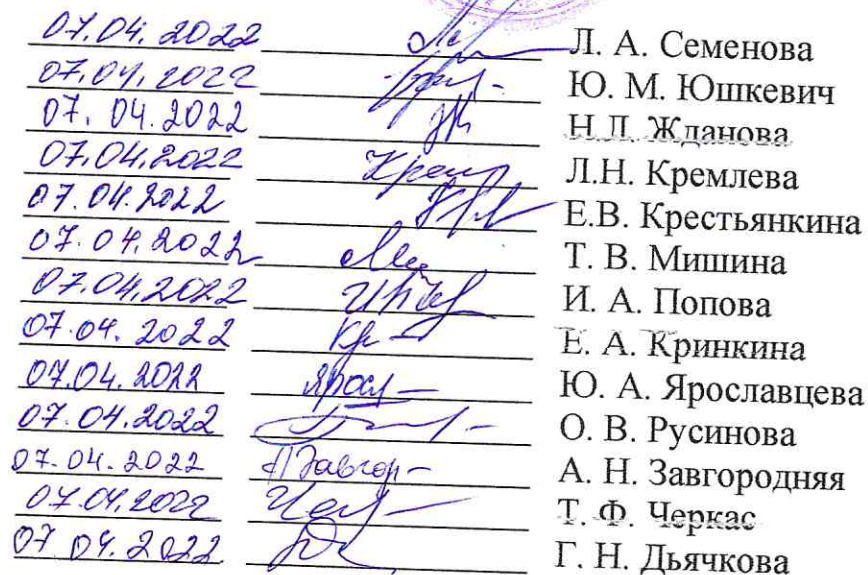 07.04.2022 Л. А. Семенова
07.04.2022 Ю. М. Юшкевич
07.04.2022 Н.Л. Жданова
07.04.2022 Л.Н. Кремлева
07.04.2022 Е.В. Крестьянкина
07.04.2022 Т. В. Мишина
07.04.2022 И. А. Попова
07.04.2022 Е. А. Кринкина
07.04.2022 Ю. А. Ярославцева
07.04.2022 О. В. Русинова
07.04.2022 А. Н. Завгородняя
07.04.2022 Т. Ф. Черкас
07.04.2022 Г. Н. Дьячкова